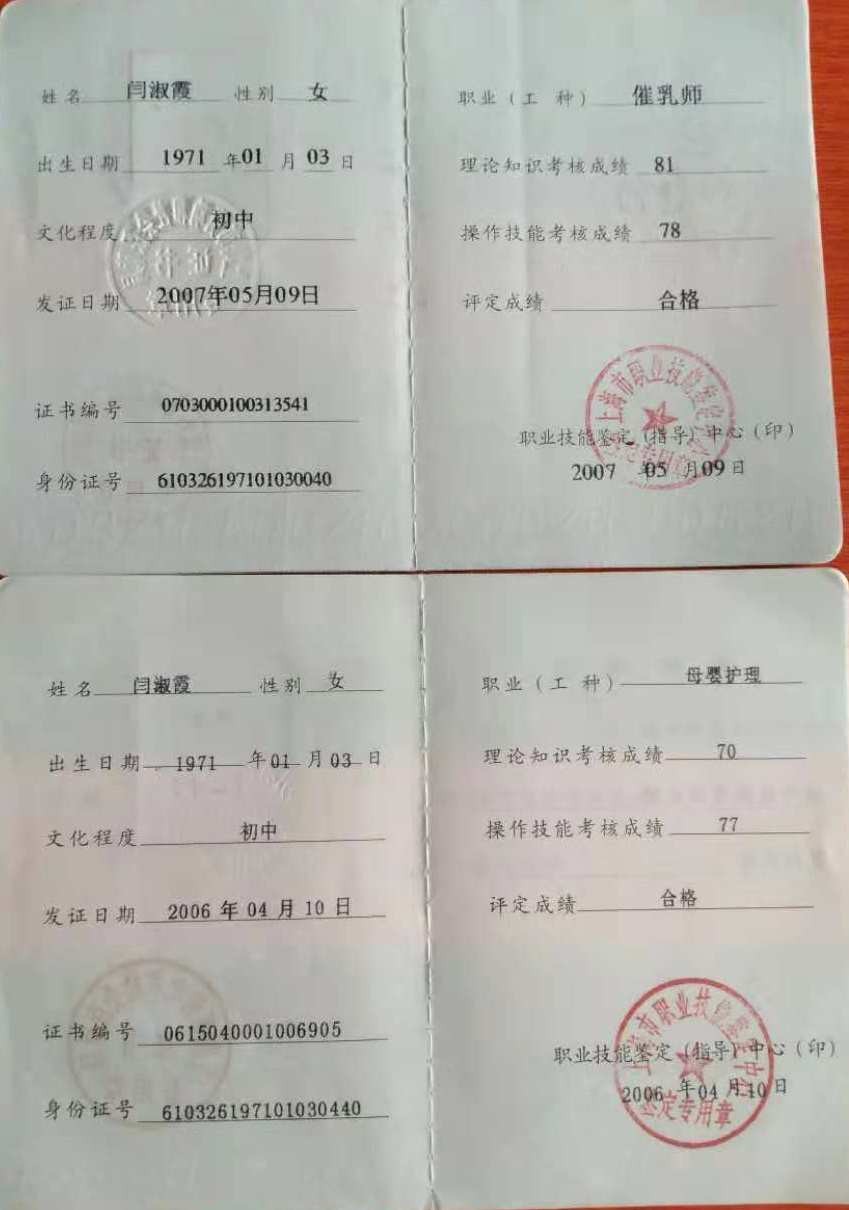 姓名 闫淑霞 性别 女
出生日期 1971 年 01 月 03 日
文化程度 初中
发证日期 2007年05月09日
证书编号 0703000100313541
身份证号 610326197101030040
职业(工 种) 催乳师
理论知识考核成绩 81
操作技能考核成绩 78
评定成绩 合格
上海市职业技能鉴定中心
职业技能鉴定(指导)中心(印)
2007 年 05 月 09 日
姓名 闫淑霞 性别 女
出生日期 1971 年 01 月 03 日
文化程度 初中
发证日期 2006 年 04 月 10 日
证书编号 0615040001006905
身份证号 610326197101030440
职业(工 种) 母婴护理
理论知识考核成绩 70
操作技能考核成绩 77
评定成绩 合格
上海市职业技能鉴定中心
职业技能鉴定(指导)中心(印)
2006 年 04 月 10 日
鉴定专用章